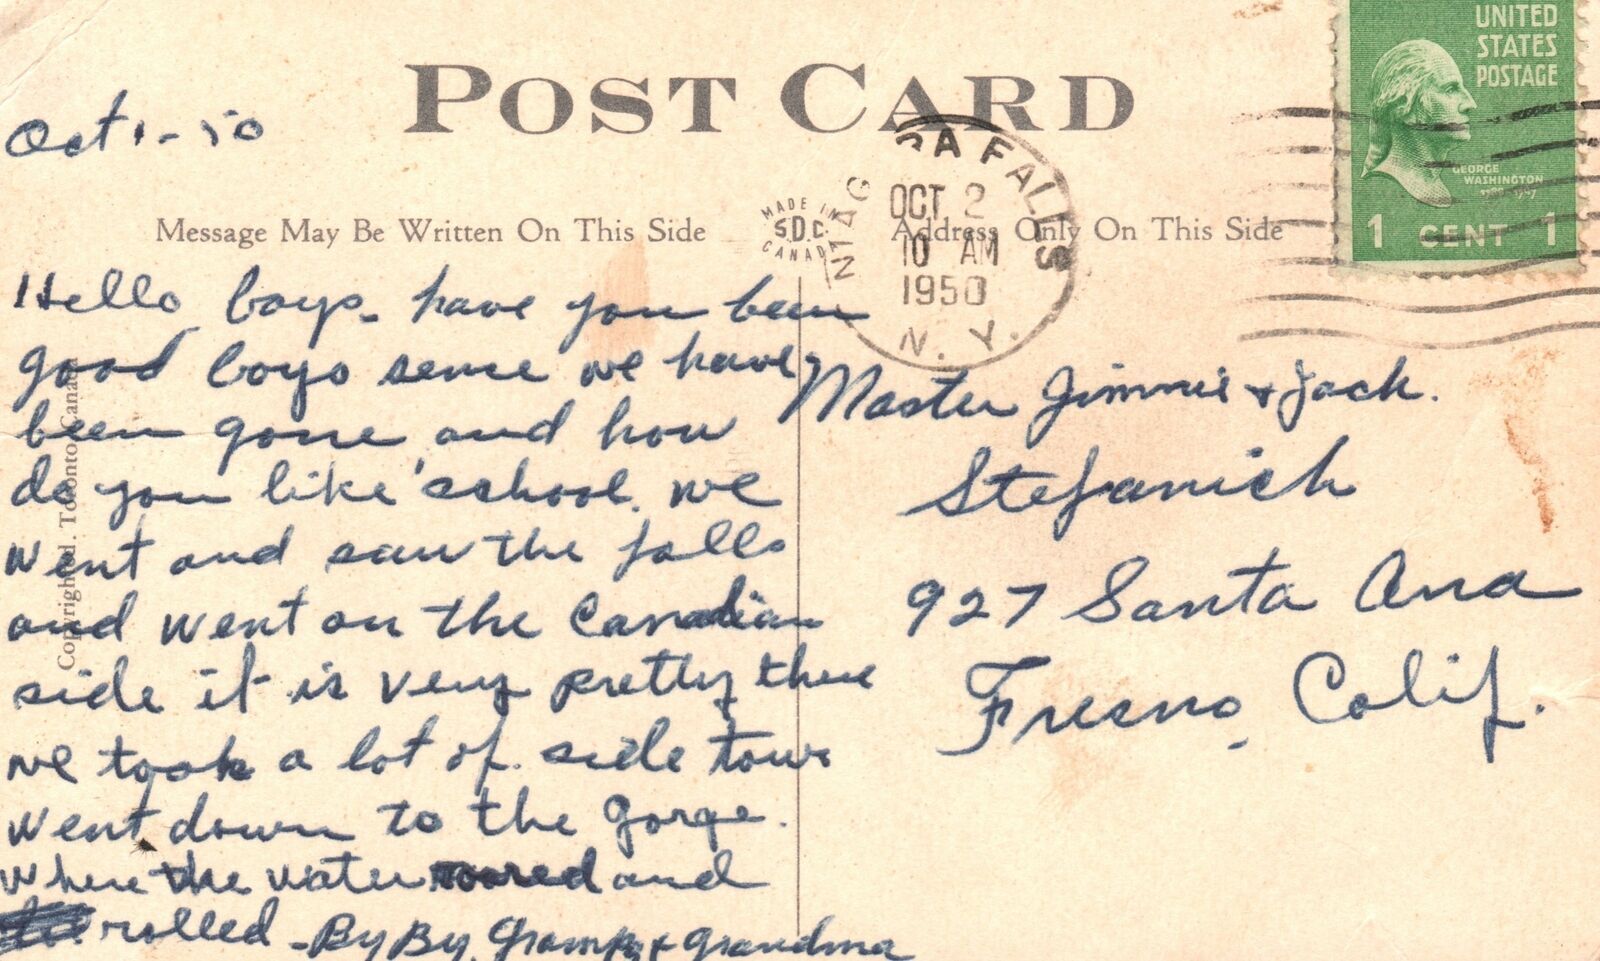 POST CARD
Oct 1 - 50
Message May Be Written On This Side
MADE IN
S.D.C.
CANADA
Address Only On This Side
NIAGARA FALLS
OCT 2
10 AM
1950
N. Y.
UNITED
STATES
POSTAGE
GEORGE
WASHINGTON
1 CENT 1
Copyrighted. Toronto Canada
Hello boys - have you been
good boys sense we have
been gone and how
do you like school. we
went and saw the falls
and went on the Canadian
side it is very pretty there
we took a lot of side tours
went down to the gorge.
where the water roared and
rolled - By By. Grampy + Grandma
Master Jimmie + Jack.
Stefanich
927 Santa Ana
Fresno, Calif.